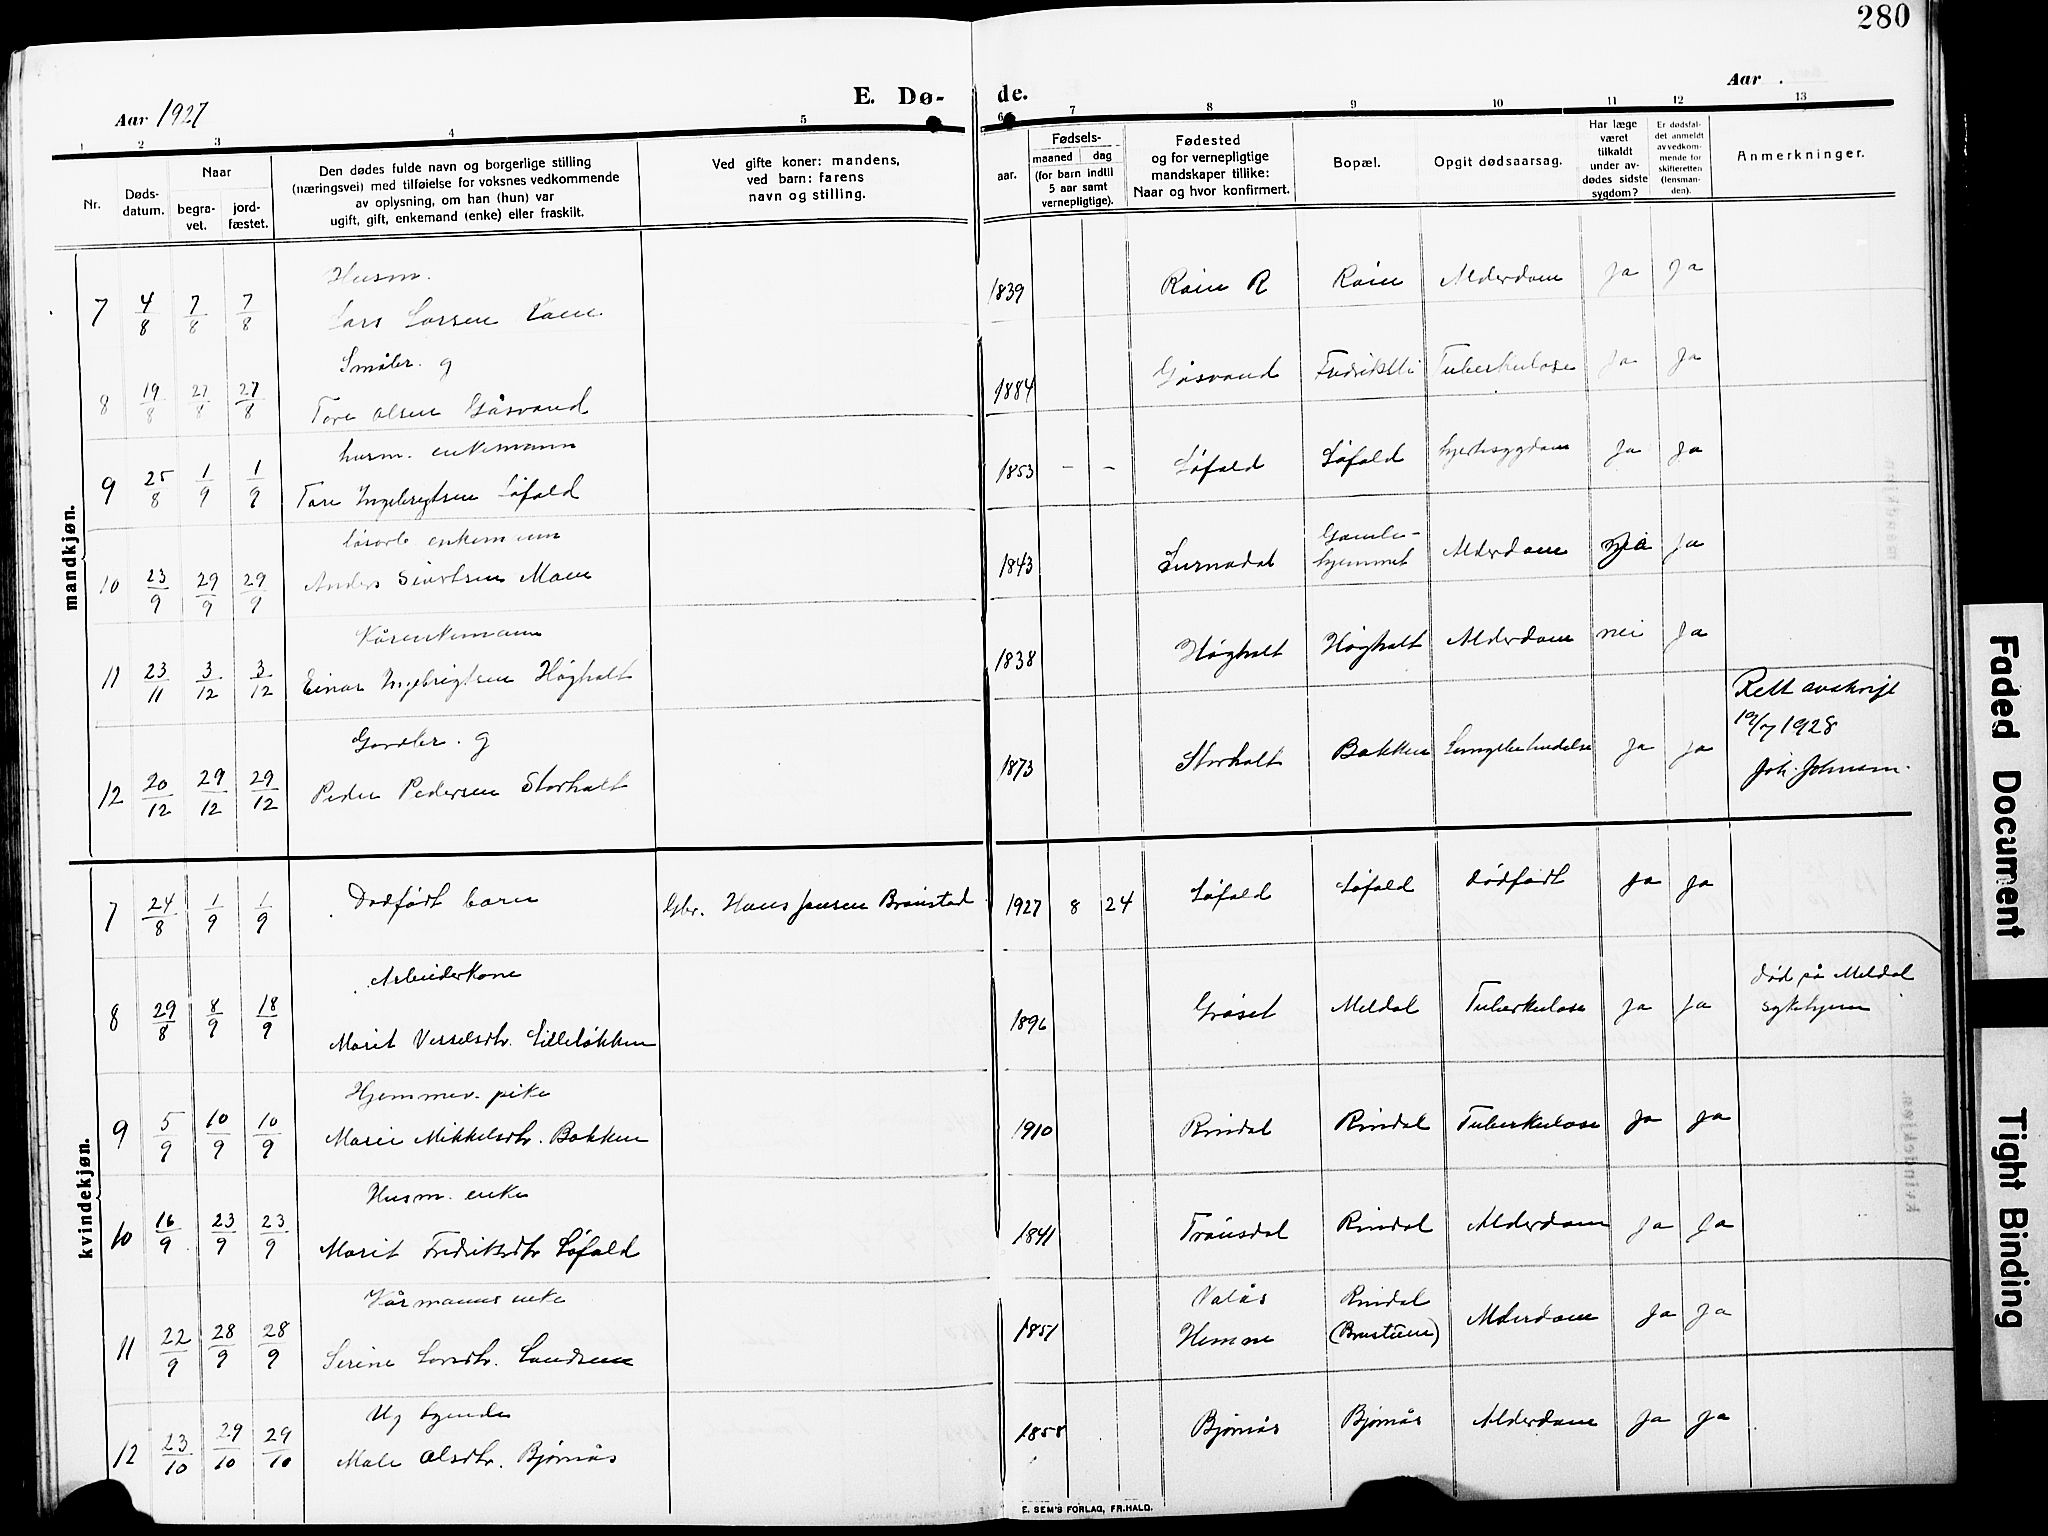 280
Aar 1927
E. Dø-
de.
Aar .
1 2 3 4 5 6 7 8 9 10 11 12 13
Nr.
Døds-
datum.
Naar
begra-
vet.
jord-
fæstet.
Den dødes fulde navn og borgerlige stilling
(næringsvei) med tilføielse for voksnes vedkommende
av oplysning, om han (hun) var
ugift, gift, enkemand (enke) eller fraskilt.
Ved gifte koner: mandens,
ved barn: farens
navn og stilling.
aar.
Fødsels-
maaned dag
(for barn indtil
5 aar samt
vernepligtige).
Fødested
og for vernepligtige
mandskaper tillike:
Naar og hvor konfirmert.
Bopæl.
Opgit dødsaarsag.
Har læge
været
tilkaldt
under av-
dødes sidste
sygdom?
Er dødsfal-
det anmeldt
av vedkom-
mende for
skifteretten
(lensman-
den).
Anmerkninger.
mandkjøn.
Husm.
7 4/8 7/8 7/8 Lars Larsen Røen 1839 Røen R Røen Alderdom Ja Ja
Småbr. g
8 19/8 27/8 27/8 Tore Olsen Gåsvand 1884 Gåsvand Fredriksli Tuberkulose Ja Ja
husm. enkemann
9 25/8 1/9 1/9 Tore Ingebrigtsen Løfald 1853 - - Løfald Løfald hjertesygdom Ja Ja
løsarb enkemann
10 23/9 29/9 29/9 Anders Sivertsen Moen 1843 Surnadal Gamle-
hjemmet Alderdom nei Ja
Kårenkemann
11 23/11 3/12 3/12 Einar Ingebrigtsen Høgholt 1838 Høgholt Høgholt Alderdom nei Ja
Gardbr. g
12 20/12 29/12 29/12 Peder Pedersen Storholt 1873 Storholt Bakken Lungebetendelse Ja Ja
Rett avskrift
19/7 1928
Joh. Johnsen.
kvindekjøn.
7 24/8 1/9 1/9 Dødfødt barn Gbr. Hans Jensen Brønstad 1927 8 24 Løfald Løfald Dødfødt Ja Ja
Arbeiderkone
8 29/8 8/9 18/9 Marit Vesselsdtr. Lilleløkken 1896 Grøset Meldal Tuberkulose Ja Ja
Død på Meldal
sykehjem
Hjemmev. pike
9 5/9 10/9 10/9 Marie Mikkelsdtr. Bakken 1910 Rindal Rindal Tuberkulose Ja Ja
Husm. enke
10 16/9 23/9 23/9 Marit Fredriksdtr Løfald 1841 Trønsdal Rindal Alderdom Ja Ja
Kårmanns enke
11 22/9 28/9 28/9 Serine Larsdtr. Landsem 1851 Valås
Hemne Rindal
Alderdom Ja Ja
Ug
12 23/10 29/10 29/10 Male Olsdtr. Bjørnås 1858 Bjørnås Bjørnås Alderdom Ja Ja
E. SEM'S FORLAG, FR.HALD.
Faded Document
Tight Binding